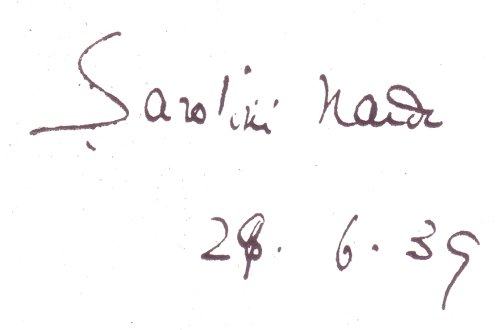 Sarojini Naidu
28. 6. 39